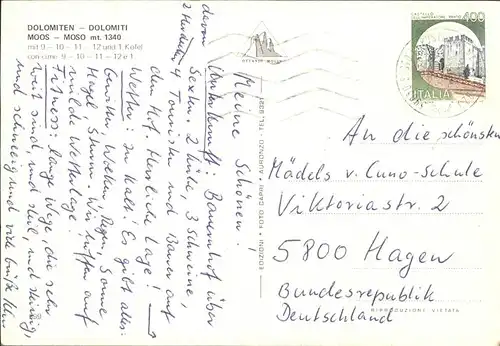 DOLOMITEN - DOLOMITI
MOOS - MOSO mt. 1340
mit 9 - 10 - 11 - 12 und 1 Kofel
con cime 9 - 10 - 11 - 12 e 1
400
ITALIA
Meine Schönen!
Unterkunft: Bauernhof über
Sexten. 2 Kühe, 3 Schweine,
4 Touristen und Bauer auf
dem Hof. Herrliche Lage!
davon
Wetter: Zu kalt! Es gibt alles:
Gewitter, Wolken, Regen, Sonne
Hagel Sturm. Wir hoffen auf
milde Wetterlage.
Fitness: lange Wege, die sehr
weit sind und steil, und steinig,
und schneeig und viele
EDIZIONI + FOTO GAPRI - AURONZO - TEL.
An die schönsten
Mädels v. Cuno-Schule
Viktoriastr. 2
5800 Hagen
Bundesrepublik
Deutschland
RIPRODUZIONE VIETATA